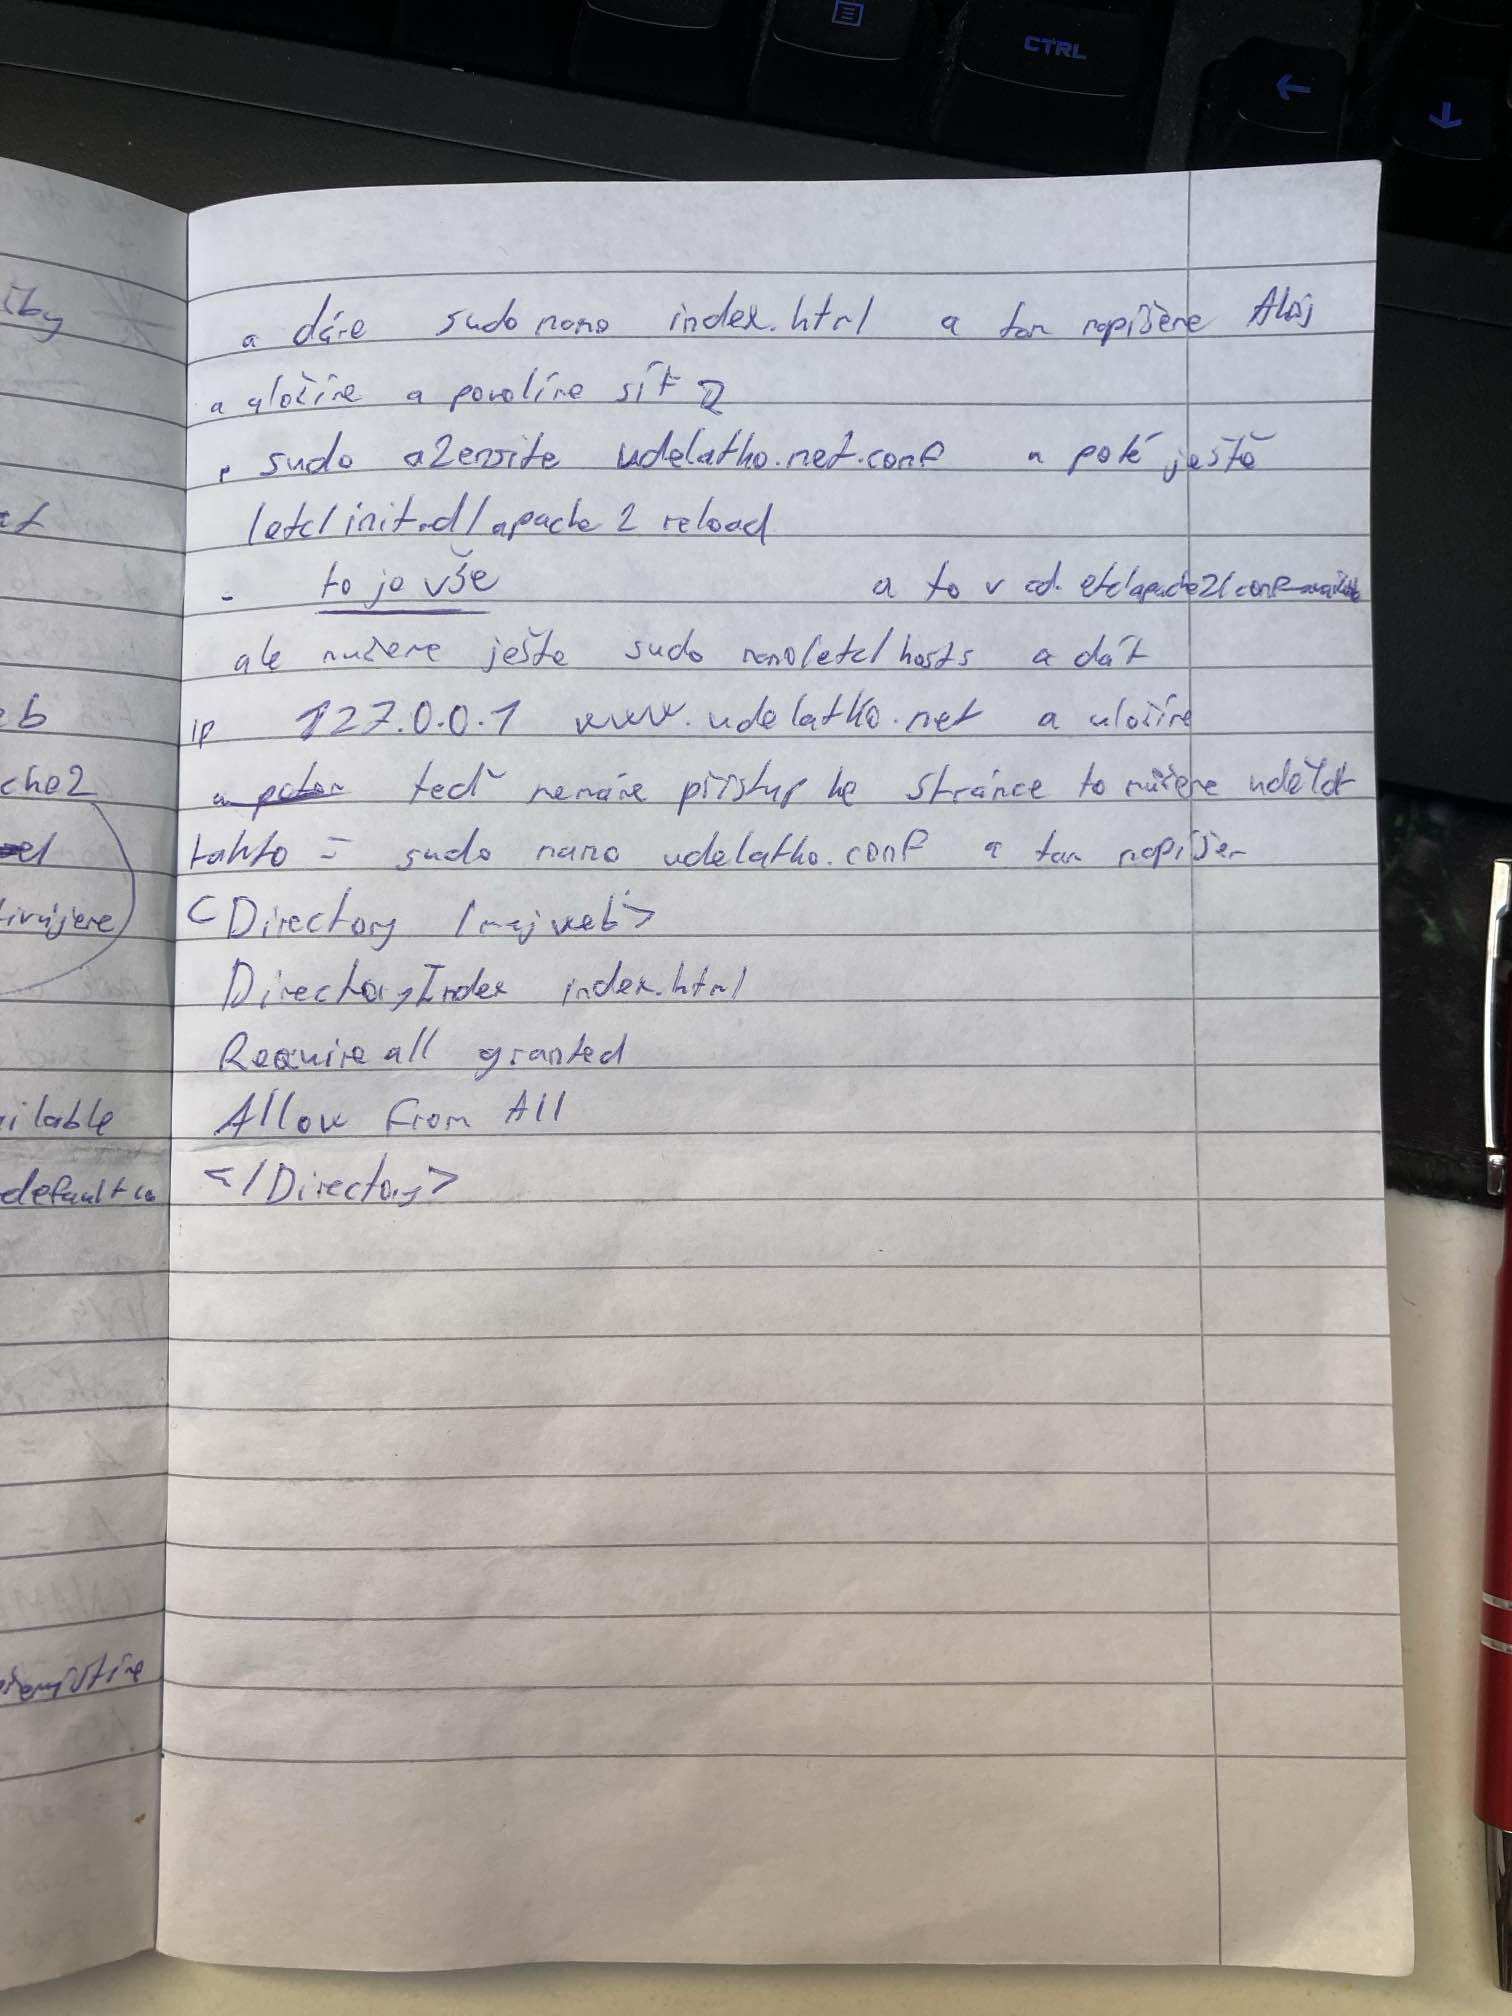 CTRL
a dáme sudo nano index.html a tam napíšeme Ahoj
a uložíme a povolíme síť
sudo a2ensite udelatko.net.conf a poté ještě
/etc/init.d/apache2 reload
- to je vše a to v cd. etc/apache2/conf-available
ale mužeme ješte sudo nano/etc/hosts a dát
ip 127.0.0.1 www.udelatko.net a uložíme
a potom teď nemáme přístup ke stránce to mužeme udělat
takto = sudo nano udelatko.conf a tam napíšem
<Directory /mujweb>
DirectoryIndex index.html
Require all granted
Allow from All
</Directory>
žby
eb
che2
ivujeme
ilable
default